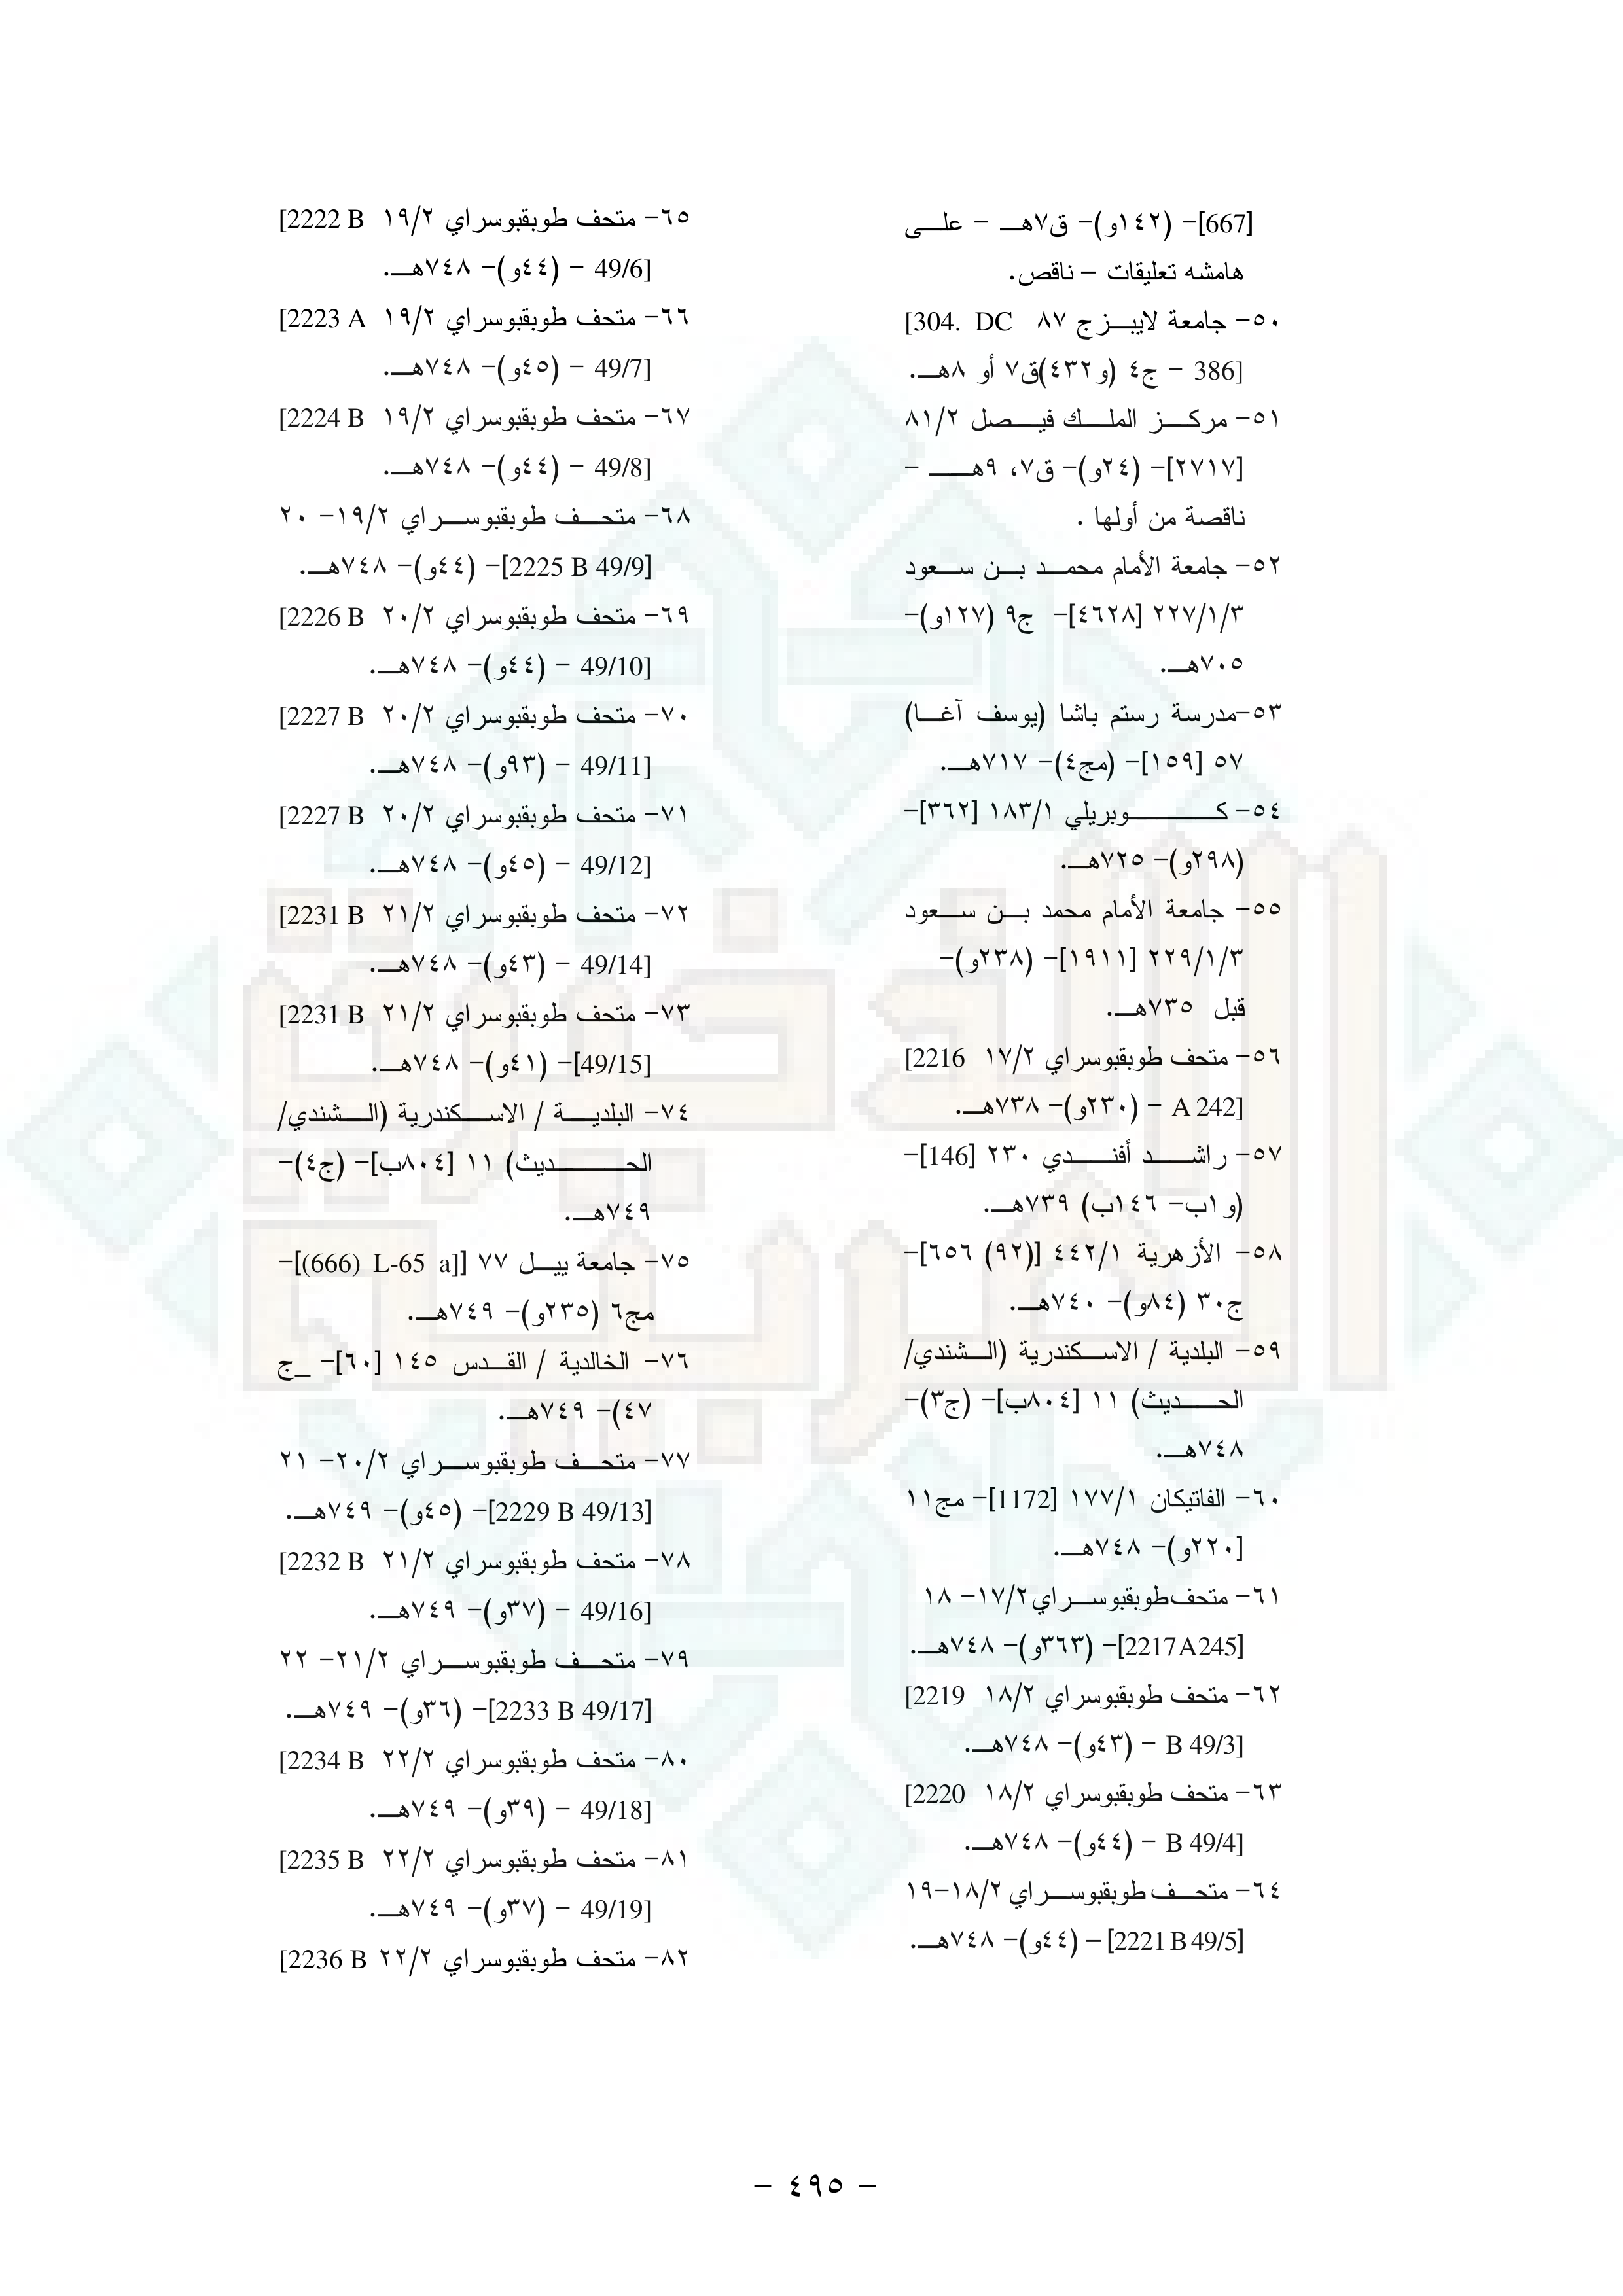 [667]- (١٤٢و)- ق٧هـ - على
هامشه تعليقات - ناقص.
٥٠- جامعة لايبزج ٨٧ [304. DC
386] - ج٤ (و٤٣٢)ق٧ أو ٨هـ.
٥١- مركز الملك فيصل ٨١/٢
[٢٧١٧]- (٢٤و)- ق٧، ٩هـ -
ناقصة من أولها .
٥٢- جامعة الأمام محمد بن سعود
٢٢٧/١/٣ [٤٦٢٨]- ج٩ (١٢٧و)-
٧٠٥هـ.
٥٣-مدرسة رستم باشا (يوسف آغا)
٥٧ [١٥٩]- (مج٤)- ٧١٧هـ.
٥٤- كوبريلي ١٨٣/١ [٣٦٢]-
(٢٩٨و)- ٧٢٥هـ.
٥٥- جامعة الأمام محمد بن سعود
٢٢٩/١/٣ [١٩١١]- (٢٣٨و)-
قبل ٧٣٥هـ.
٥٦- متحف طوبقبوسراي ١٧/٢ [2216
A 242] - (٢٣٠و)- ٧٣٨هـ.
٥٧- راشد أفندي ٢٣٠ [146]-
(و١ب- ١٤٦ب) ٧٣٩هـ.
٥٨- الأزهرية ٤٤٢/١ [(٩٢) ٦٥٦]-
ج٣٠ (٨٤و)- ٧٤٠هـ.
٥٩- البلدية / الاسكندرية (الشندي/
الحديث) ١١ [٨٠٤ب]- (ج٣)-
٧٤٨هـ.
٦٠- الفاتيكان ١٧٧/١ [1172]- مج١١
[٢٢٠و)- ٧٤٨هـ.
٦١- متحف طوبقبوسراي ١٧/٢- ١٨
[2217A245]- (٣٦٣و)- ٧٤٨هـ.
٦٢- متحف طوبقبوسراي ١٨/٢ [2219
B 49/3] - (٤٣و)- ٧٤٨هـ.
٦٣- متحف طوبقبوسراي ١٨/٢ [2220
B 49/4] - (٤٤و)- ٧٤٨هـ.
٦٤- متحف طوبقبوسراي ١٨/٢-١٩
[2221 B 49/5] - (٤٤و)- ٧٤٨هـ.
٦٥- متحف طوبقبوسراي ١٩/٢ [2222 B
49/6] - (٤٤و)- ٧٤٨هـ.
٦٦- متحف طوبقبوسراي ١٩/٢ [2223 A
49/7] - (٤٥و)- ٧٤٨هـ.
٦٧- متحف طوبقبوسراي ١٩/٢ [2224 B
49/8] - (٤٤و)- ٧٤٨هـ.
٦٨- متحف طوبقبوسراي ١٩/٢- ٢٠
[2225 B 49/9]- (٤٤و)- ٧٤٨هـ.
٦٩- متحف طوبقبوسراي ٢٠/٢ [2226 B
49/10] - (٤٤و)- ٧٤٨هـ.
٧٠- متحف طوبقبوسراي ٢٠/٢ [2227 B
49/11] - (٩٣و)- ٧٤٨هـ.
٧١- متحف طوبقبوسراي ٢٠/٢ [2227 B
49/12] - (٤٥و)- ٧٤٨هـ.
٧٢- متحف طوبقبوسراي ٢١/٢ [2231 B
49/14] - (٤٣و)- ٧٤٨هـ.
٧٣- متحف طوبقبوسراي ٢١/٢ [2231 B
49/15]- (٤١و)- ٧٤٨هـ.
٧٤- البلدية / الاسكندرية (الشندي/
الحديث) ١١ [٨٠٤ب]- (ج٤)-
٧٤٩هـ.
٧٥- جامعة ييل ٧٧ [[(666) L-65 a)]-
مج٦ (٢٣٥و)- ٧٤٩هـ.
٧٦- الخالدية / القدس ١٤٥ [٦٠]- _ج
٤٧)- ٧٤٩هـ.
٧٧- متحف طوبقبوسراي ٢٠/٢- ٢١
[2229 B 49/13]- (٤٥و)- ٧٤٩هـ.
٧٨- متحف طوبقبوسراي ٢١/٢ [2232 B
49/16] - (٣٧و)- ٧٤٩هـ.
٧٩- متحف طوبقبوسراي ٢١/٢- ٢٢
[2233 B 49/17]- (٣٦و)- ٧٤٩هـ.
٨٠- متحف طوبقبوسراي ٢٢/٢ [2234 B
49/18] - (٣٩و)- ٧٤٩هـ.
٨١- متحف طوبقبوسراي ٢٢/٢ [2235 B
49/19] - (٣٧و)- ٧٤٩هـ.
٨٢- متحف طوبقبوسراي ٢٢/٢ [2236 B
- ٤٩٥ -